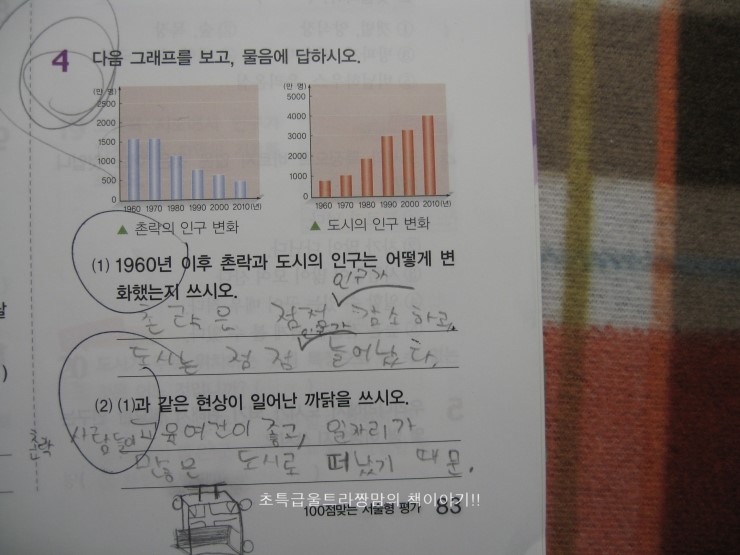 4 다음 그래프를 보고, 물음에 답하시오.
(만 명)
2500
2000
1500
1000
500
0
1960 1970 1980 1990 2000 2010(년)
▲ 촌락의 인구 변화
(만 명)
5000
4000
3000
2000
1000
0
1960 1970 1980 1990 2000 2010(년)
▲ 도시의 인구 변화
(1) 1960년 이후 촌락과 도시의 인구는 어떻게 변
화했는지 쓰시오.
인구가
촌락은 점점 감소하고,
인구가
도시는 점점 늘어났다.
(2) (1)과 같은 현상이 일어난 까닭을 쓰시오.
촌락
사람들이 교육여건이 좋고, 일자리가
많은 도시로 떠났기 때문.
초특급울트라짱맘의 책이야기!!
100점맞는 서술형 평가 83